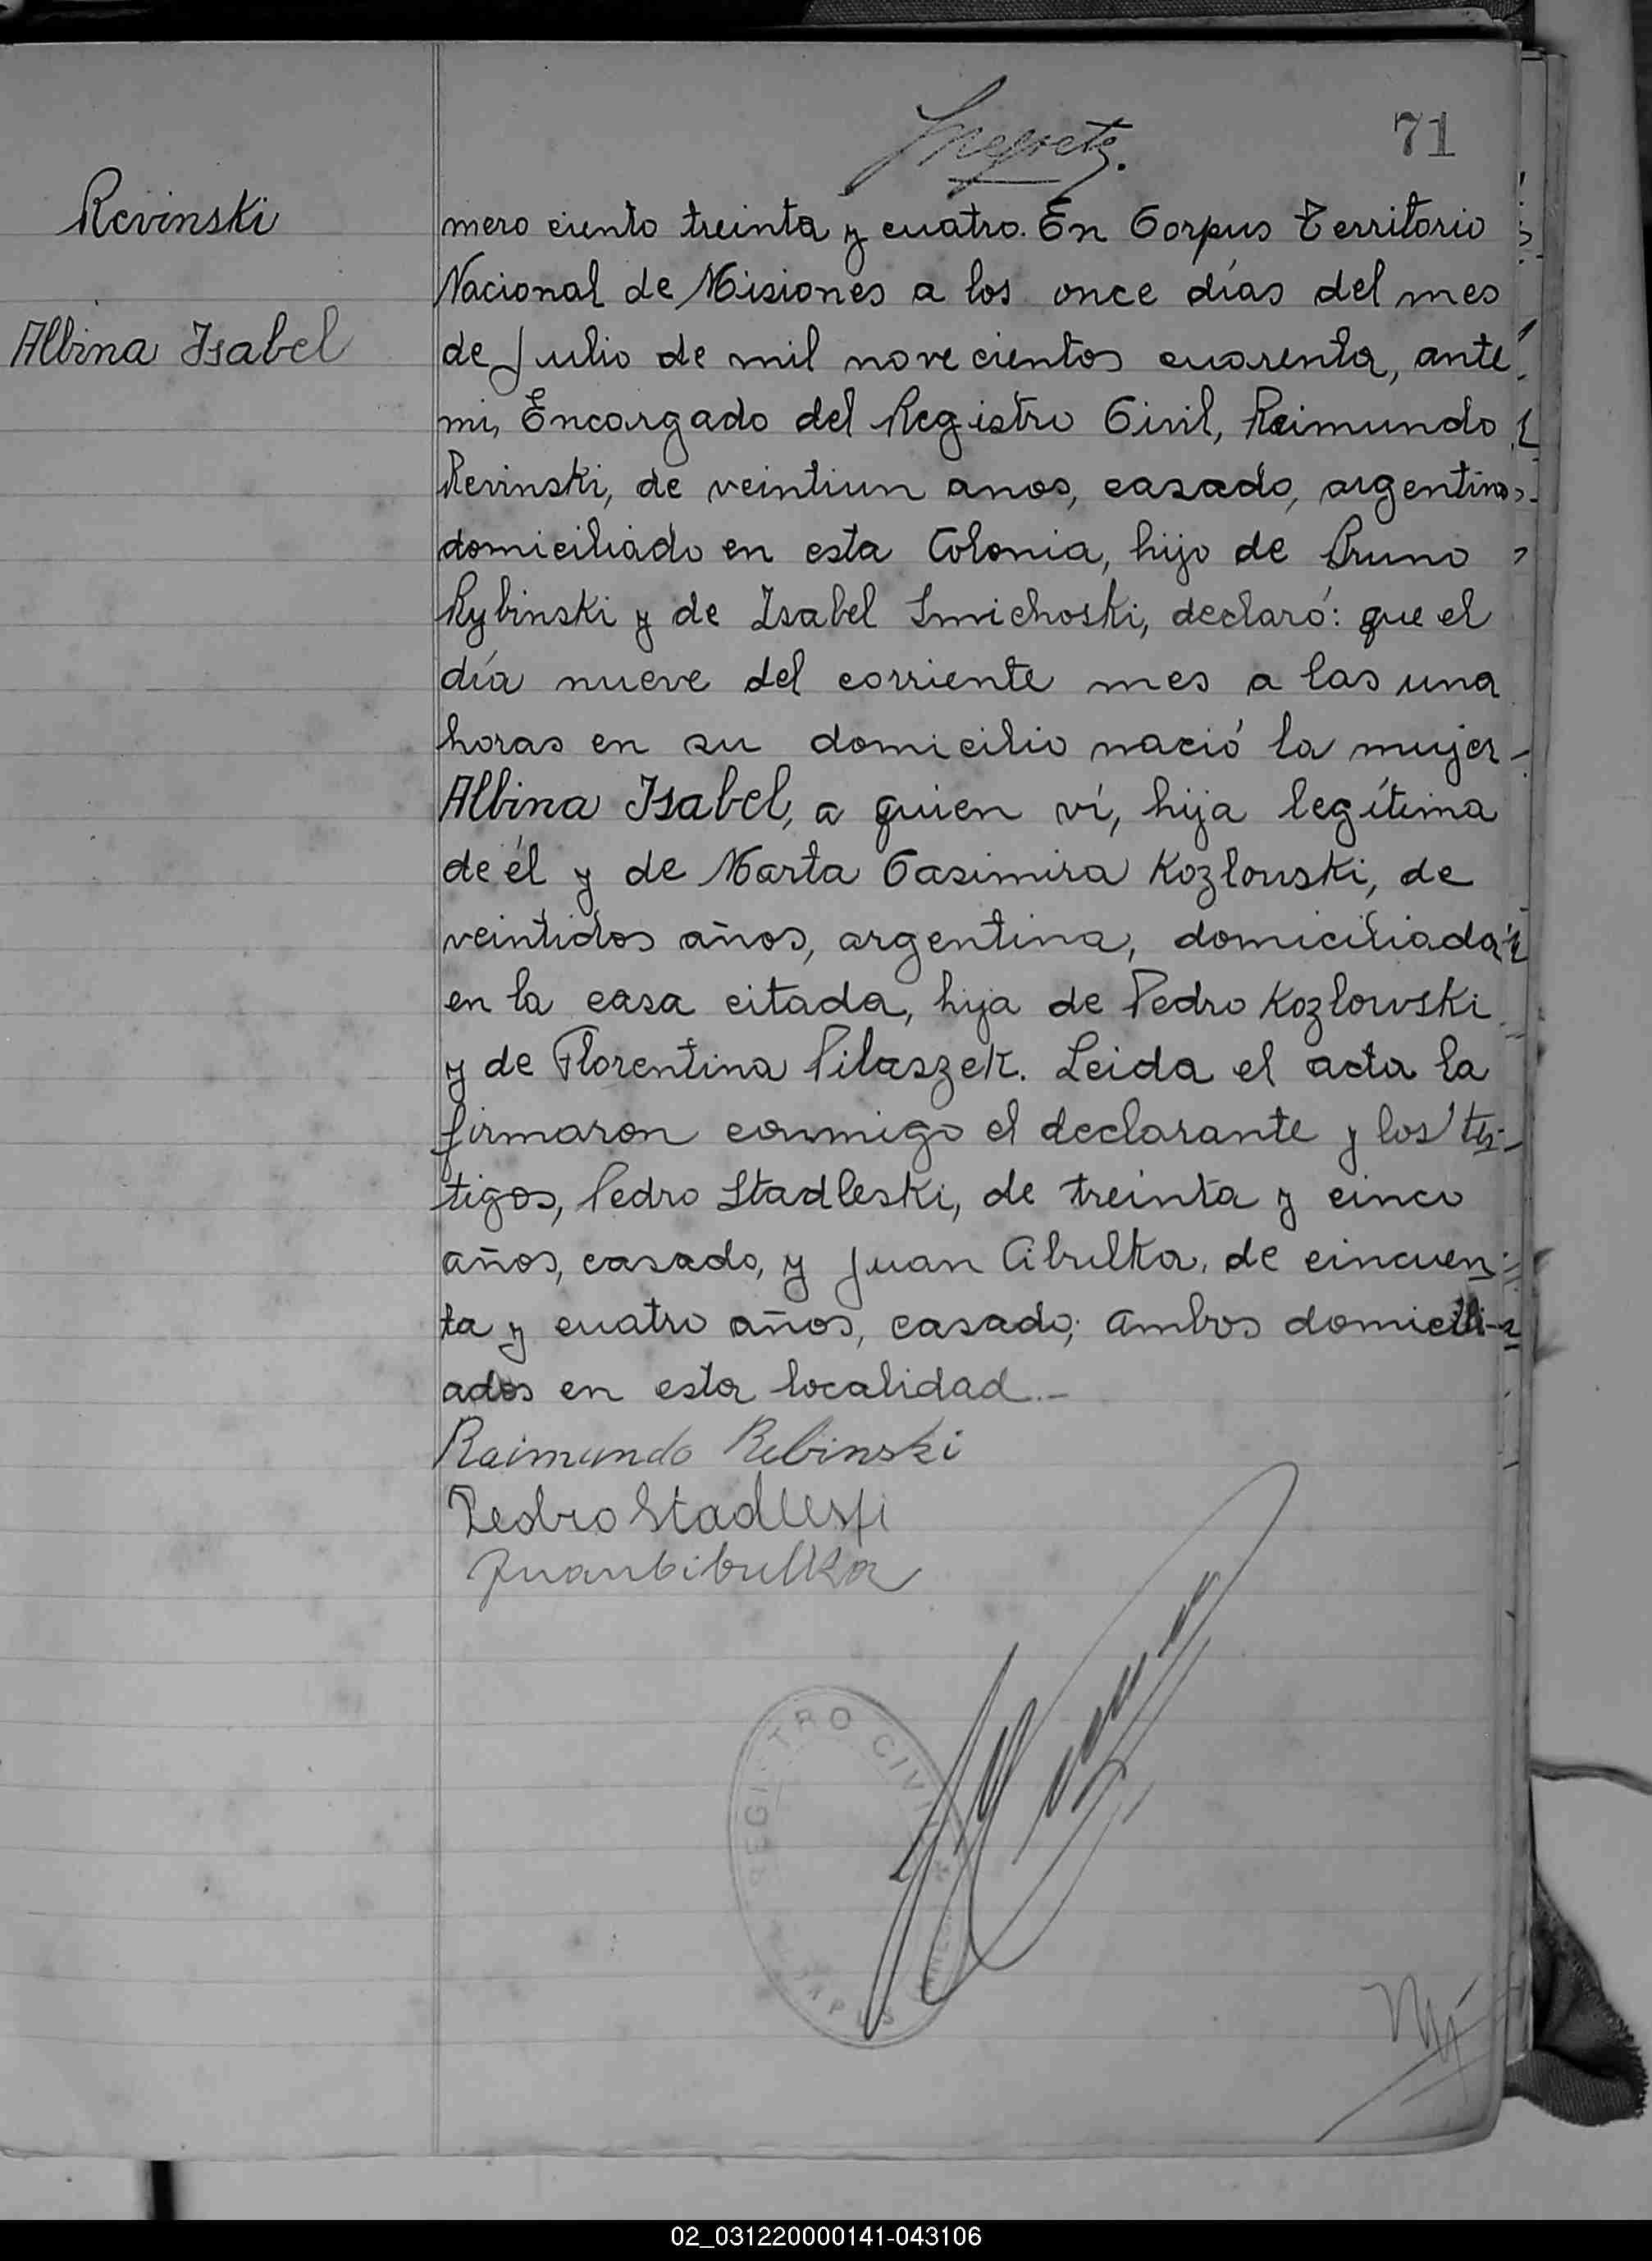 71
Revinski
Albina Isabel
mero ciento treinta y cuatro. En Corpus Territorio
Nacional de Misiones a los once días del mes
de Julio de mil novecientos cuarenta, ante
mi, Encargado del Registro Civil, Reimundo
Revinski, de veintiun anos, casado, argentino,
domiciliado en esta Colonia, hijo de Bruno
Rybinski y de Isabel Smichoski, declaró: que el
día nueve del corriente mes a las una
horas en su domicilio nació la mujer
Albina Isabel, a quien ví, hija legítima
de él y de Marta Casimira Kozlouski, de
veintidos años, argentina, domiciliada
en la casa citada, hija de Pedro Kozlowski
y de Florentina Pilaszek. Leida el acta la
firmaron conmigo el declarante y los tes-
tigos, Pedro Stadleski, de treinta y cinco
años, casado, y Juan Cibulka, de cincuen
ta y cuatro años, casado; ambos domicili-
ados en esta localidad.-
Raimundo Rebinski
Pedro Stadleski
Juan Cibulka
REGISTRO CIVIL
02_031220000141-043106